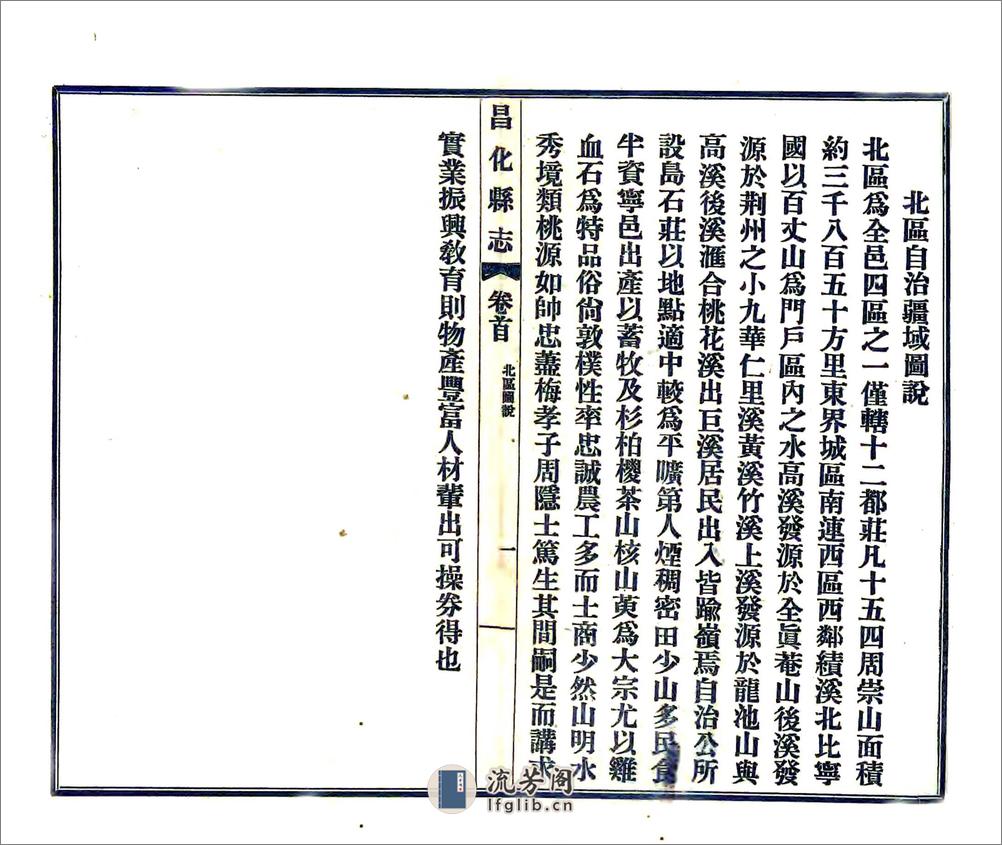 北區自治疆域圖說
北區爲全邑四區之一僅轄十二都莊凡十五四周崇山面積
約三千八百五十方里東界城區南連西區西鄰績溪北比寧
國以百丈山爲門戶區內之水高溪發源於全眞菴山後溪發
源於荆州之小九華仁里溪黃溪竹溪上溪發源於龍池山與
高溪後溪滙合桃花溪出巨溪居民出入皆踰嶺焉自治公所
設島石莊以地點適中較爲平曠第人煙稠密田少山多民食
半資寧邑出產以蓄牧及杉柏櫻茶山核山萸爲大宗尤以雞
血石爲特品俗尙敦樸性率忠誠農工多而士商少然山明水
秀境類桃源如帥忠藎梅孝子周隱士篤生其間嗣是而講求
昌化縣志
卷首
北區圖說
一
實業振興教育則物產豐富人材輩出可操券得也
流芳阁
lfglib.cn